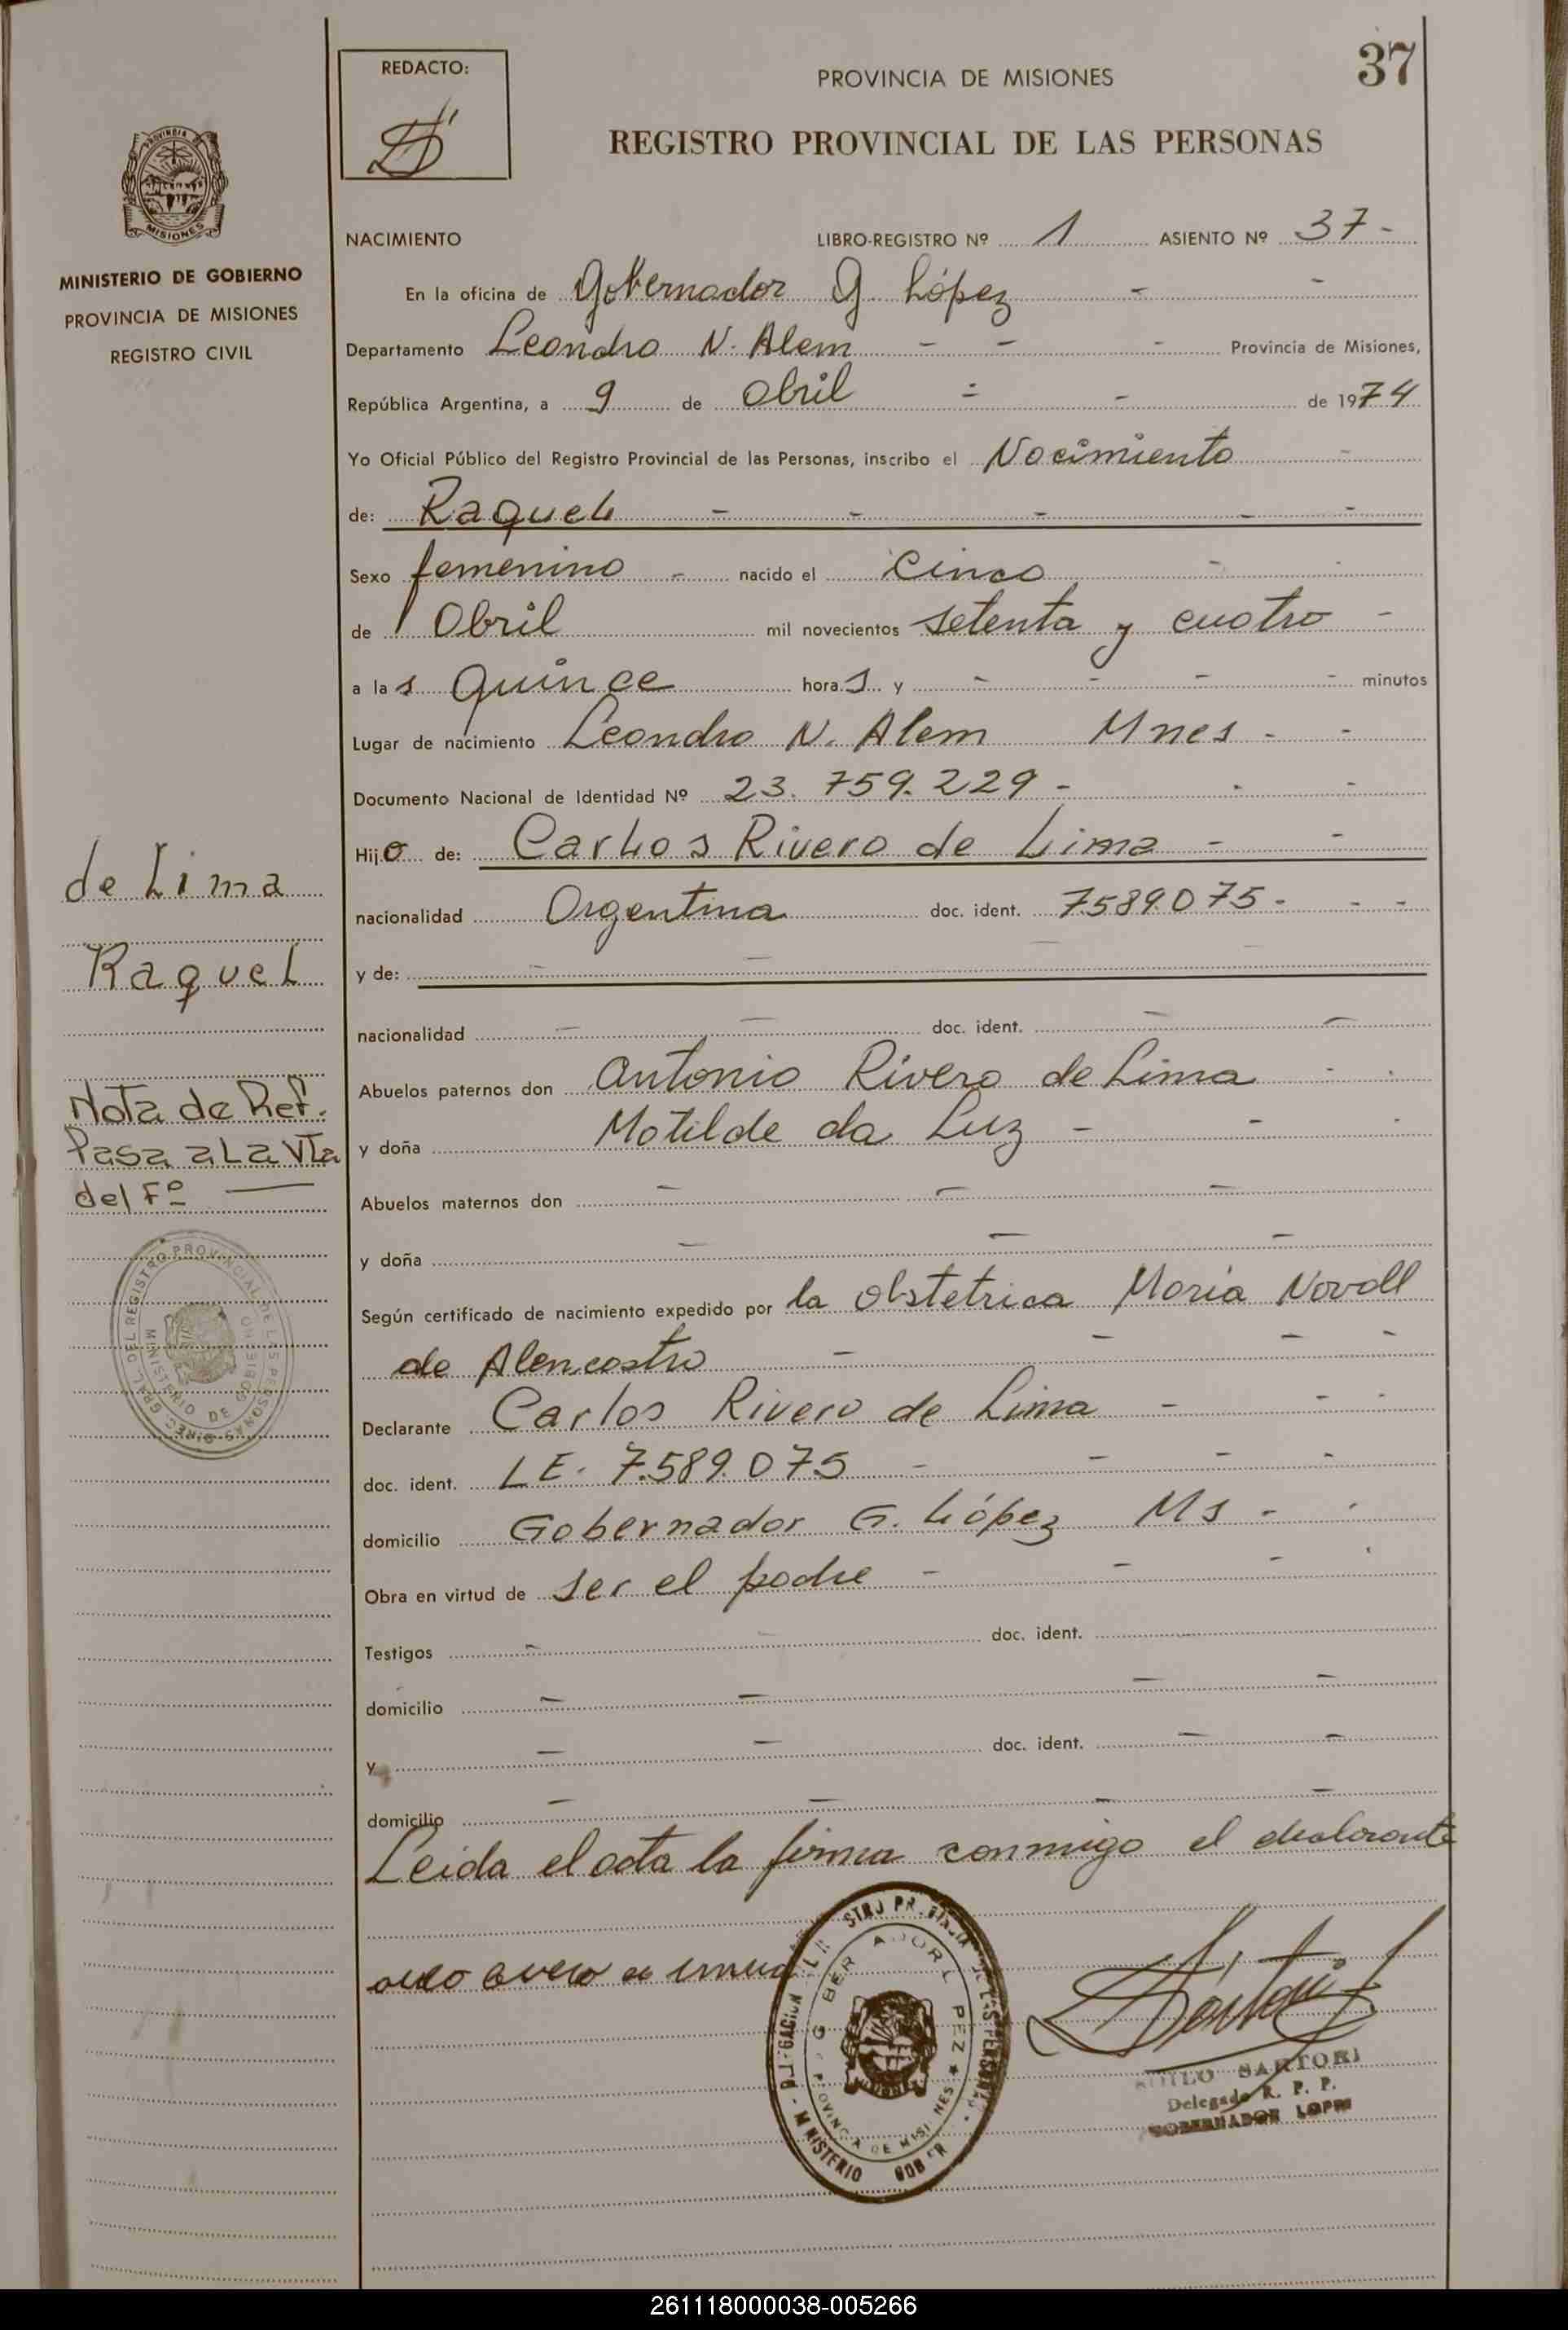 37
REDACTO:
PROVINCIA DE MISIONES
REGISTRO PROVINCIAL DE LAS PERSONAS
MINISTERIO DE GOBIERNO
PROVINCIA DE MISIONES
REGISTRO CIVIL
NACIMIENTO LIBRO-REGISTRO Nº 1 ASIENTO Nº 37-
En la oficina de Gobernador G. López
Departamento Leandro N. Alem Provincia de Misiones,
República Argentina, a 9 de abril de 1974
Yo Oficial Público del Registro Provincial de las Personas, inscribo el Nacimiento
de: Raquel
Sexo femenino nacido el cinco
de Abril mil novecientos setenta y cuatro
a las quince horas y - minutos
Lugar de nacimiento Leandro N. Alem Mnes -
Documento Nacional de Identidad Nº 23.759.229 -
Hijo de: Carlos Rivero de Lima -
nacionalidad Argentina doc. ident. 7.589.075 -
y de:
nacionalidad doc. ident.
Abuelos paternos don Antonio Rivero de Lima
y doña Matilde da Luz -
Abuelos maternos don
y doña
Según certificado de nacimiento expedido por la obstetrica María
de Alencastro
Declarante Carlos Rivero de Lima -
doc. ident. L E. 7.589.075
domicilio Gobernador G. López Ms -
Obra en virtud de ser el padre -
Testigos doc. ident.
domicilio
y doc. ident.
domicilio
Leida el acta la firma conmigo el declarante
de Lima
Raquel
Nota de Ref.
Pasa a La Vta
del Fº
DIREC. GRAL. DEL REGISTRO PROVINCIAL DE LAS PERSONAS
MINISTERIO DE GOBIERNO
PROVINCIA DE MISIONES
SARTORI
Delegado R. P. P.
GOBERNADOR LOPEZ
261118000038-005266